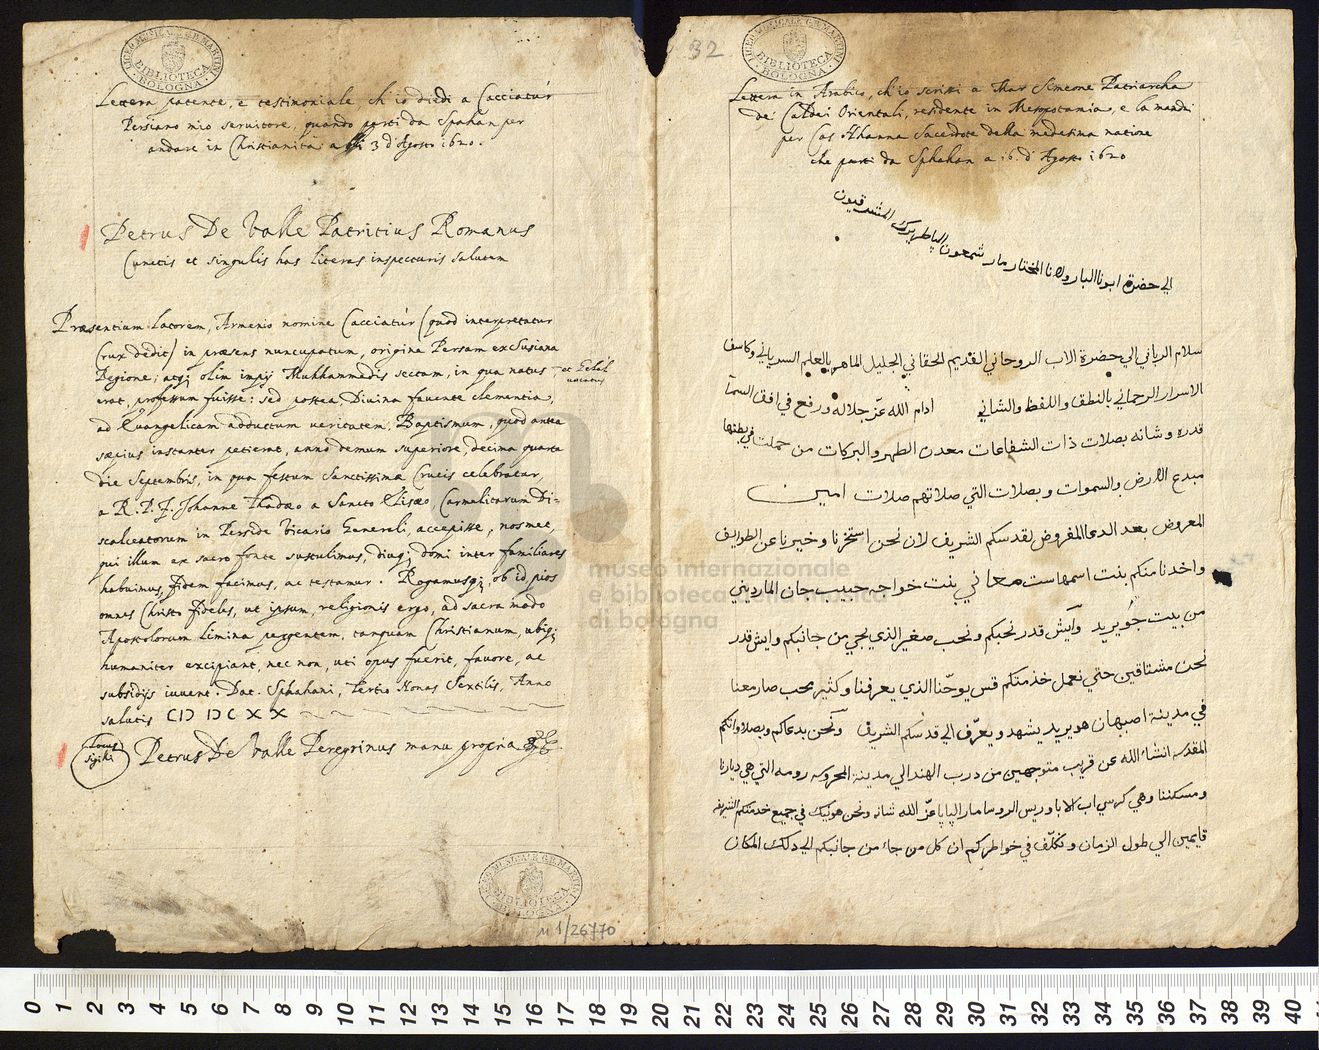 LICEO MUSICALE G.B. MARTINI
BIBLIOTECA
BOLOGNA
Lettera patente, e testimoniale, ch'io diedi a Cacciatùr
Persiano mio servitore, quando partì da Spahan per
andare in Christianità a 3 d'Agosto 1620.
Petrus De Valle Patritius Romanus
Cunctis et singulis has literas inspecturis salutem
Præsentium latorem, Armenio nomine Cacciatùr (quod interpretatur
Crux dedit) in præsens nuncupatum, origine Persam ex Susiana
Regione, atq; olim impij Muhhammedis sectam, in qua natus
et
vocatus
erat, professum fuisse: sed postea Divina favente clementia,
ad Evangelicam adductum veritatem, Baptismum, quod antea
sæpius instanter petierat, anno demum superiore, decima quarta
die Septembris, in qua festum Sanctissimæ Crucis celebratur,
a R. P. F. Johanne Thadæo a Sancto Elisæo Carmelitarum Di-
scalceatorum in Perside Vicario Generali, accepisse, nosmet,
qui illum ex sacro fonte sustulimus, diuq; domi inter familiares
habuimus, fidem facimus, ac testamur. Rogamusq; ob id, pios
omnes Christo fideles, ut ipsum, religionis ergo, ad sacra modo
Apostolorum limina pergentem, tanquam Christianum, ubiq;
humaniter excipiant, nec non, uti opus fuerit, favore, ac
subsidijs iuvent. Dat. Sphahani, Tertio Nonas Sextilis, Anno
salutis CIƆ IƆC XX
Locus
sigilli
Petrus De Valle Peregrinus manu propria
LICEO MUSICALE G.B. MARTINI
BIBLIOTECA
BOLOGNA
32
LICEO MUSICALE G.B. MARTINI
BIBLIOTECA
BOLOGNA
Lettera in Arabico, ch'io scrissi a Mar Simeone Patriarcha
de' Caldei Orientali, residente in Mesopotamia, e la mandai
per Cas Ohanna Sacerdote della medesima natione
che partì da Sphahan a 16. d'Agosto 1620
الي حضرة ابونا البار ولانا المختار مار شمعون الپاطريرك المشرقيون
سلام الرباني الي حضرة الاب الروحاني القديم الحقاني الجليل الماهر بالعلم السرياني وكاسف
الاسرار الرحماني بالنطق واللفظ والشاني ادام الله عز جلاله ورفع في افق السمآ
قدره وشانه بصلات ذات الشفاعات معدن الطهر والبركات من حملت في بطنها
مبدع الارض والسموات وبصلات التي صلاتهم صلات امين
المعروض بعد الدعا المفروض لقدسكم الشريف لان نحن استخرنا وخيرنا عن الطوايف
واخدنا منكم بنت اسمها ست معاني بنت خواجه حبيب جان المارديني
من بيت جويريد وآيش قدر نحبكم ونحب صغير الذي يجي من جانبكم وايش قدر
نحن مشتاقين حتي نعمل خدمتكم قس يوحنا الذي يعرفنا وكثير محب صار معنا
في مدينة اصبهان هو يريد يشهد ويعرّف الي قدسكم الشريف ونحن بدعاكم وبصلاواتكم
المقدسه انشاء الله عن قريب متوجهين من درب الهند الي مدينة المحروسه رومه التي هي ديارنا
ومسكننا وهي كرسي اب الابا وريس الروسا مار الپاپا عزّ الله شانه ونحن هونيك في جميع خدمتكم الشريفه
قايمين الي طول الزمان ونكلّف في خواطركم ان كل من جاء من جانبكم الي دلك المكان
museo internazionale
e biblioteca della musica
di bologna
0 1 2 3 4 5 6 7 8 9 10 11 12 13 14 15 16 17 18 19 20 21 22 23 24 25 26 27 28 29 30 31 32 33 34 35 36 37 38 39 40